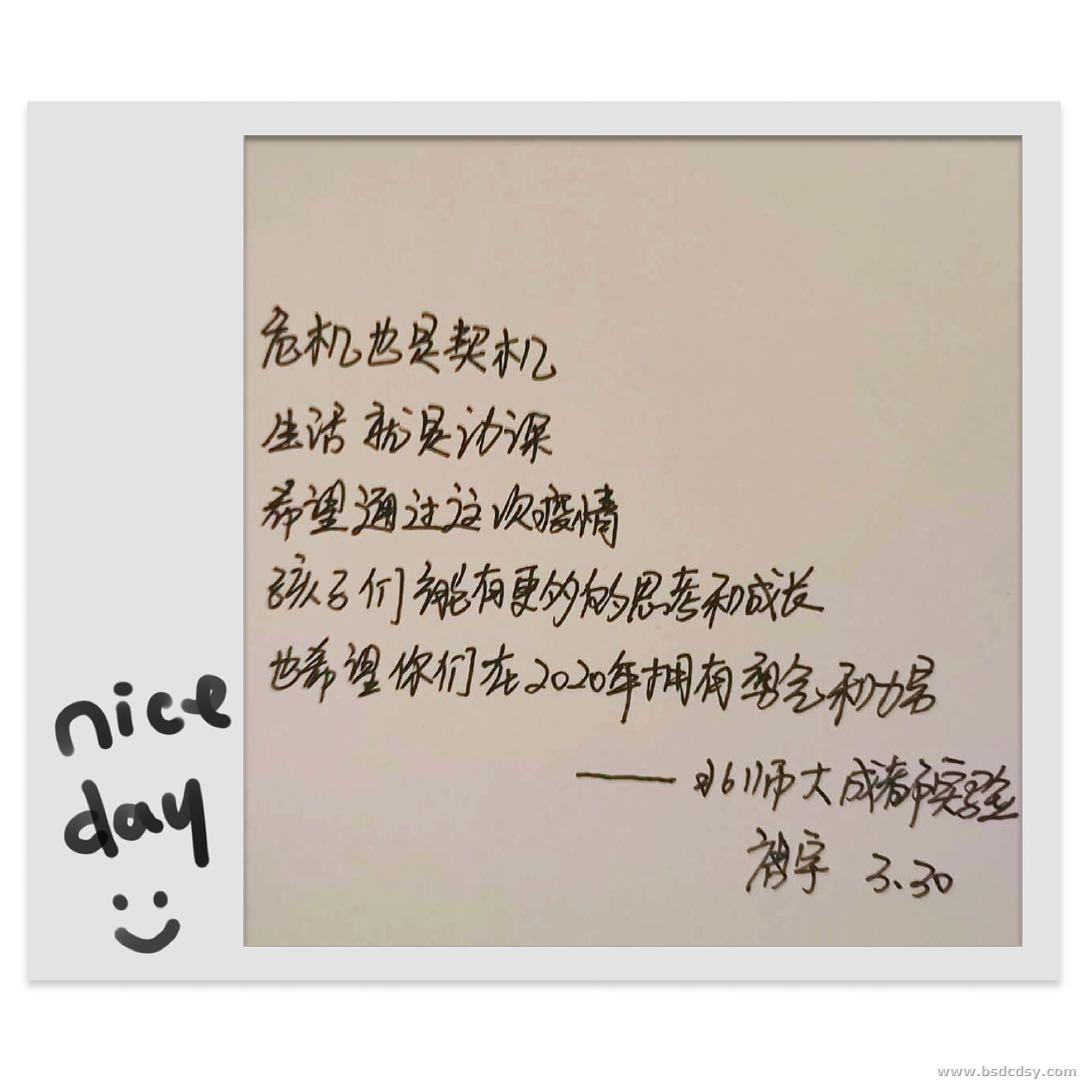 危机也是契机
生活就是功课
希望通过这次疫情
孩子们能有更多的思考和成长
也希望你们在2020年拥有和
——北师大成都实验
宇 3.30
nice
day
www.bsdcdsy.com